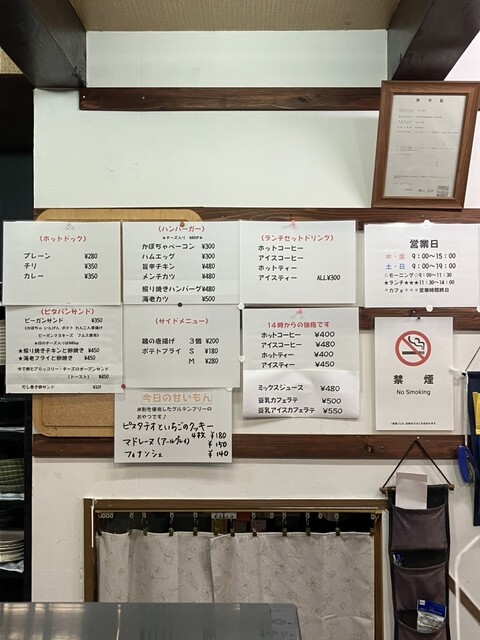 《ホットドッグ》
プレーン ¥280
チリ ¥350
カレー ¥350
《ハンバーガー》
かぼちゃベーコン ¥300
ハムエッグ ¥300
旨辛チキン ¥480
メンチカツ ¥480
照り焼きハンバーグ¥480
海老カツ ¥500
《ランチセットドリンク》
ホットコーヒー
アイスコーヒー
ホットティー
アイスティー ALL¥300
営業日
水・金 9:00〜15:00
土・日 9:00〜19:00
☆モーニング☆9:00〜11:30
★ランチ★★★11:30〜14:00
☆カフェ☆☆☆営業時間終日
《ピタパンサンド》
ビーガンサンド ¥350
★照り焼きチキンと卵焼き ¥450
★海老フライと卵焼き ¥450
(トースト) ¥450
だし巻き卵サンド ¥320
《サイドメニュー》
鶏の唐揚げ 3個 ¥200
ポテトフライ S ¥180
M ¥280
14時からの価格です
ホットコーヒー ¥400
アイスコーヒー ¥480
ホットティー ¥400
アイスティー ¥450
ミックスジュース ¥480
豆乳カフェラテ ¥500
豆乳アイスカフェラテ ¥550
禁煙
No Smoking
今日の甘いもん
米粉を使用したグルテンフリーの
おやつです♪
ピスタチオといちごのクッキー
4枚 ¥180
マドレーヌ(アールグレイ) ¥150
フィナンシェ ¥140